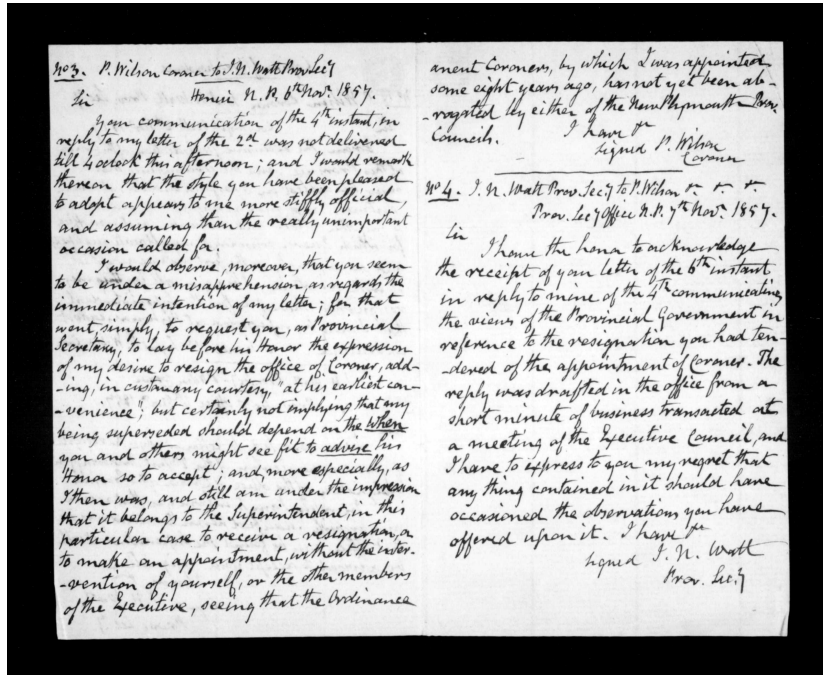 No 3. P. Wilson Coroner to I. N. Watt Prov. Secy
Henui N. P. 6th Novr. 1857.
Sir
Your communication of the 4th instant, in
reply to my letter of the 2nd was not delivered
till 4 oclock this afternoon; and I would remark
thereon that the style you have been pleased
to adopt appears to me more stiffly official,
and assuming than the really unimportant
occasion called for.
I would observe, moreover, that you seem
to be under a misapprehension, as regards the
immediate intention of my letter; for that
went, simply, to request you, as Provincial
Secretary, to lay before his Honor the expression
of my desire to resign the office of Coroner, add-
-ing, in customary courtesy, "at his earliest con-
-venience"; but certainly not implying that my
being superseded should depend on the when
you and others might see fit to advise his
Honor so to accept; and more especially, as
I then was, and still am under the impression
that it belongs to the Superintendent, in this
particular case to receive a resignation, or
to make an appointment, without the inter-
-vention of yourself, or the other members
of the Executive, seeing that the Ordinance
anent Coroners, by which I was appointed
some eight years ago, has not yet been ab-
-rogated by either of the New Plymouth Prov.
Councils.
I have &c
signed P. Wilson
Coroner
No 4. I. N. Watt Prov. Secy to P. Wilson &c. &c. &c.
Prov. Secy Office N. P. 7th Novr. 1857.
Sir
I have the honor to acknowledge
the receipt of your letter of the 6th instant
in reply to mine of the 4th communicating
the views of the Provincial Government in
reference to the resignation you had ten-
-dered of the appointment of Coroner. The
reply was drafted in the office from a
short minute of business transacted at
a meeting of the Executive Council, and
I have to express to you my regret that
any thing contained in it should have
occasioned the observations you have
offered upon it. I have &c
signed I. N. Watt
Prov. Secy